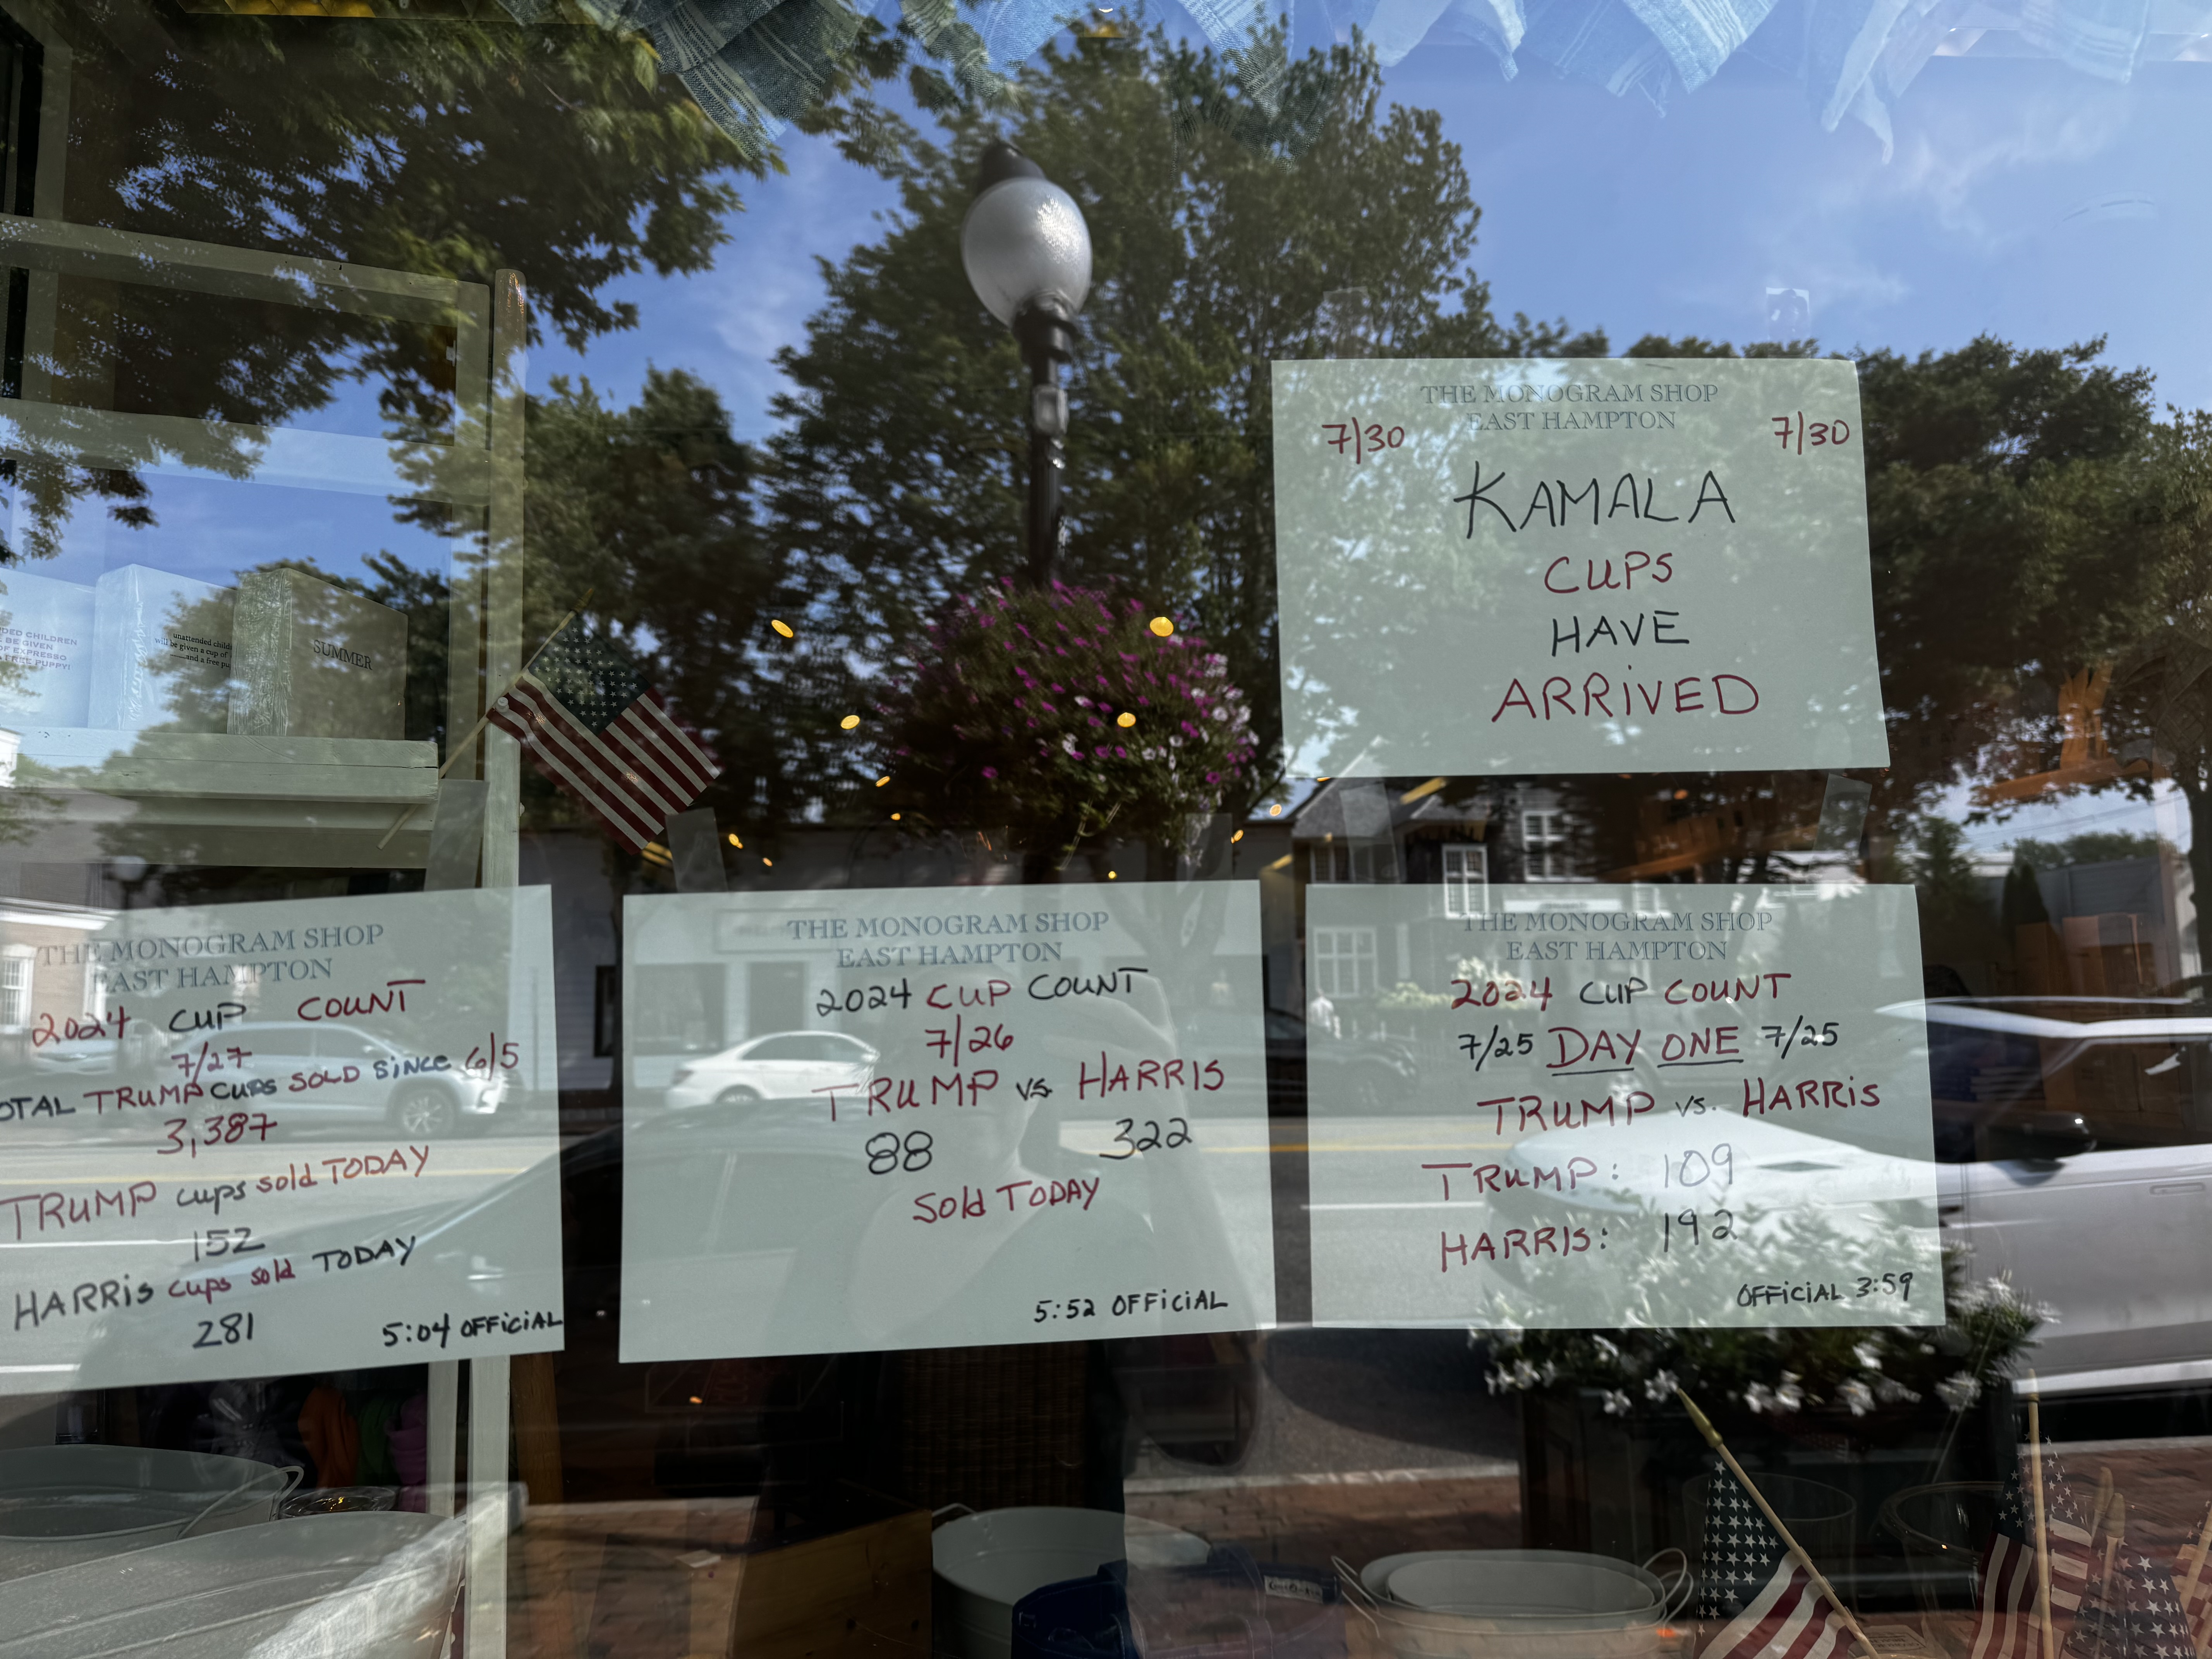 THE MONOGRAM SHOP
EAST HAMPTON
7/30 7/30
KAMALA
CUPS
HAVE
ARRIVED
DED CHILDREN
BE GIVEN
OF EXPRESSO
FREE PUPPY!
unattended child
will be given a cup of
and a free pu
SUMMER
THE MONOGRAM SHOP
EAST HAMPTON
2024 CUP COUNT
7/27
OTAL TRUMP CUPS SOLD SINCE 6/5
3,387
TRUMP cups sold TODAY
152
HARRIS cups sold TODAY
281
5:04 OFFICIAL
THE MONOGRAM SHOP
EAST HAMPTON
2024 CUP COUNT
7/26
TRUMP vs. HARRIS
88 322
Sold TODAY
5:52 OFFICIAL
THE MONOGRAM SHOP
EAST HAMPTON
2024 CUP COUNT
7/25 DAY ONE 7/25
TRUMP vs. HARRIS
TRUMP: 109
HARRIS: 192
OFFICIAL 3:59